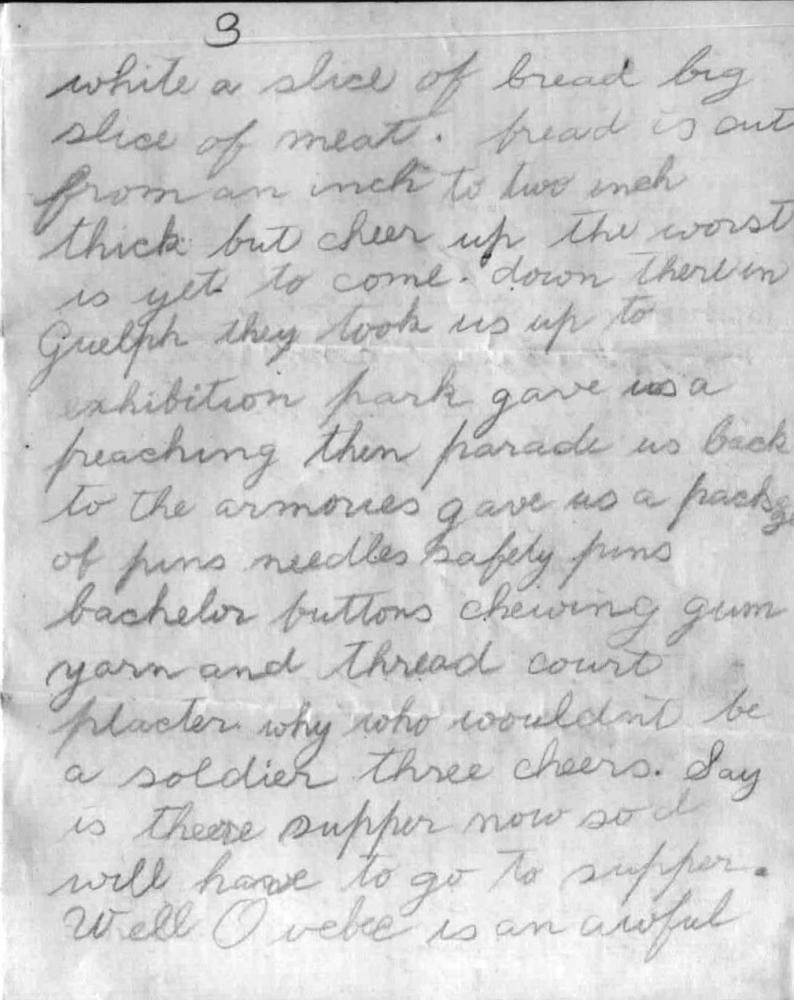 3
white a slice of bread big
slice of meat. bread is cut
from an inch to two inch
thick but cheer up the worst
is yet to come. down there in
Guelph they took us up to
exhibition park gave us a
preaching then parade us back
to the armories gave us a package
of pins needles safety pins
bachelor buttons chewing gum
yarn and thread court
placter why who wouldnt be
a soldier three cheers. Say
is theere supper now so I
will have to go to supper.
Well Quebec is an awful